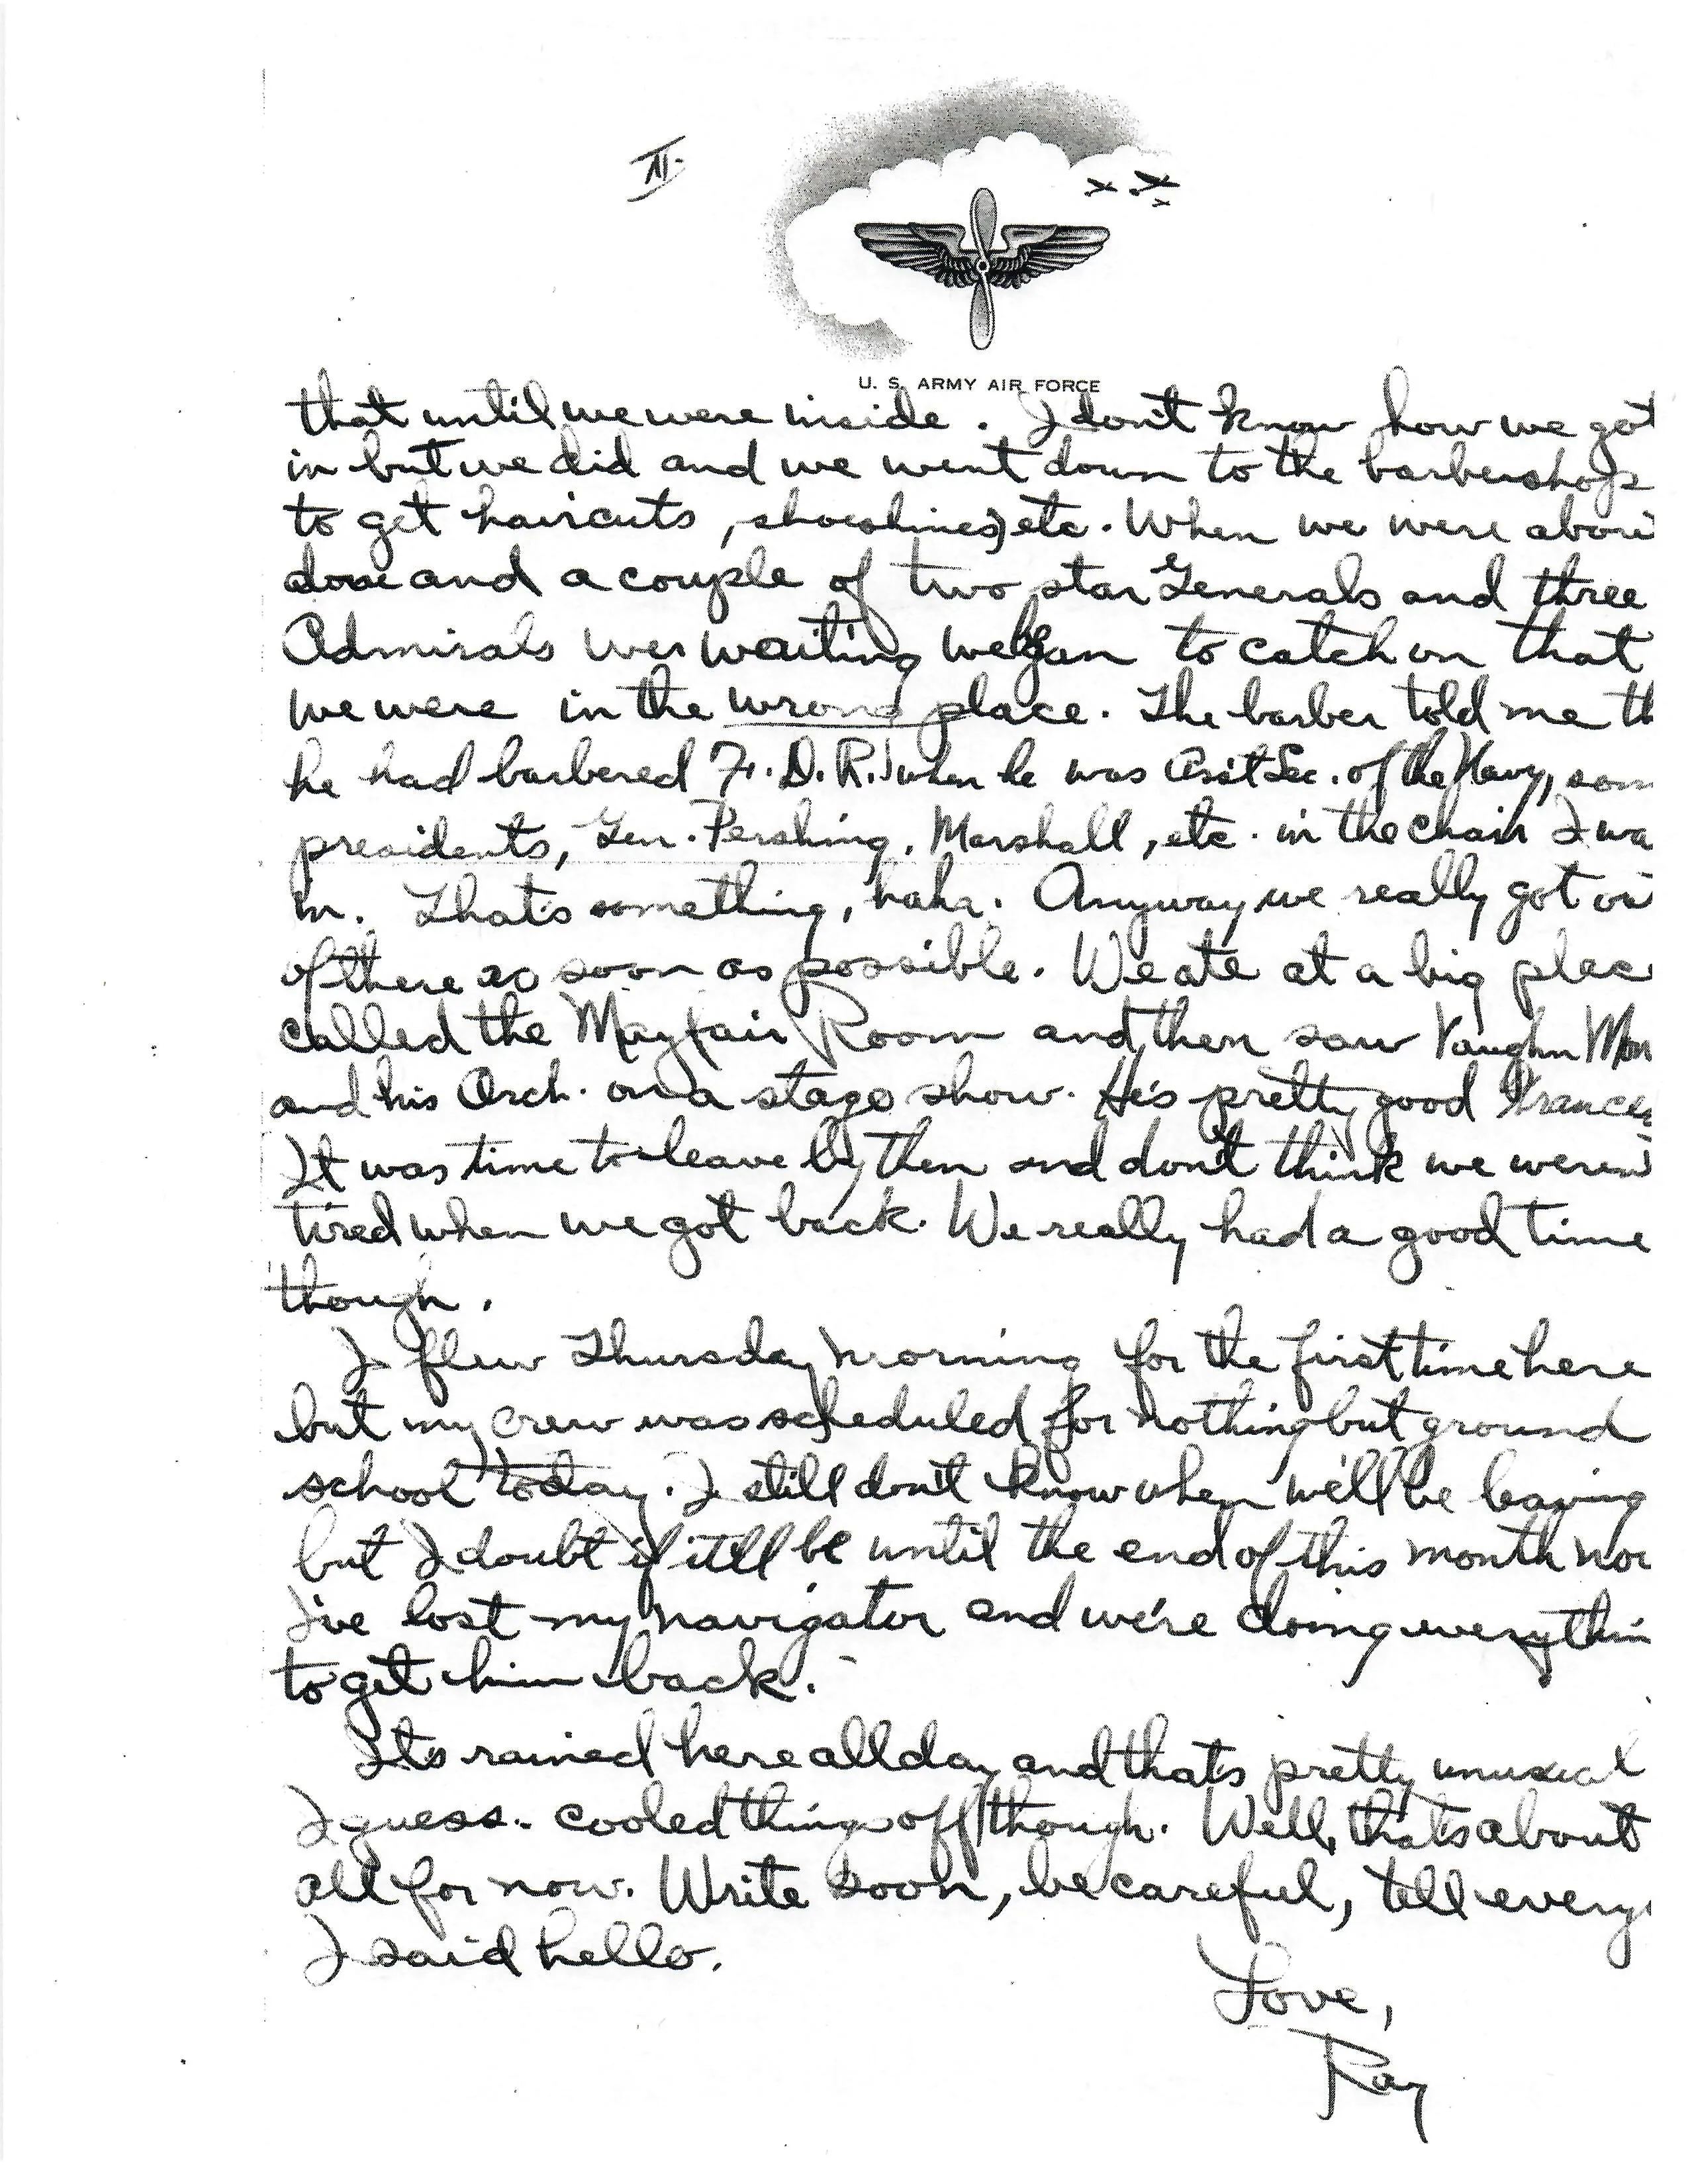 II.
U. S. ARMY AIR FORCE
that until we were inside. I don't know how we got
in but we did and we went down to the barbershop
to get haircuts, shoeshines, etc. When we were abou
done and a couple of two star Generals and three
Admirals wer waiting we began to catch on that
we were in the wrong place. The barber told me th
he had barbered F. D. R. when he was Ass't Sec. of the Navy, som
presidents, Gen. Pershing, Marshall, etc. in the chair I wa
in. That's something, haha. Anyway we really got ou
of there as soon as possible. We ate at a big plac
called the Mayfair Room and then saw Vaughn Mon
and his Orch. on a stage show. He's pretty good Frances
It was time to leave by then and don't think we weren'
tired when we got back. We really had a good time
though.
I flew Thursday morning for the first time here
but my crew was scheduled for nothing but ground
school today. I still don't know when we'll be leaving
but I doubt if it'll be until the end of this month now
I've lost my navigator and we're doing everythin
to get him back.
It's rained here all day and that's pretty unusual
I guess. cooled things off though. Well, that's about
all for now. Write soon, be careful, tell every
I said hello.
Love,
Ray